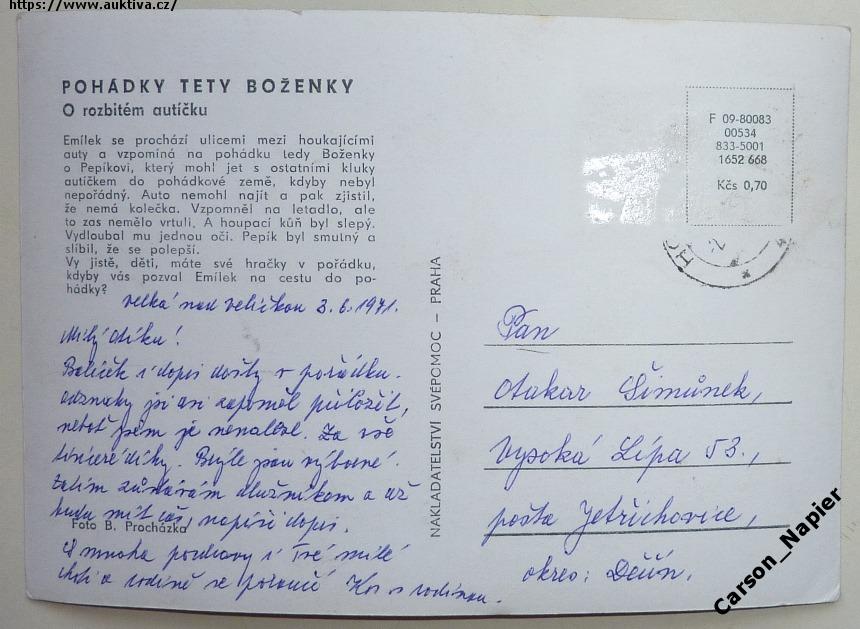 https://www.auktiva.cz/
POHÁDKY TETY BOŽENKY
O rozbitém autíčku
Emílek se prochází ulicemi mezi houkajícími
auty a vzpomíná na pohádku tedy Boženky
o Pepíkovi, který mohl jet s ostatními kluky
autíčkem do pohádkové země, kdyby nebyl
nepořádný. Auto nemohl najít a pak zjistil,
že nemá kolečka. Vzpomněl na letadlo, ale
to zas nemělo vrtuli. A houpací kůň byl slepý.
Vydloubal mu jednou oči. Pepík byl smutný a
slíbil, že se polepší.
Vy jistě, děti, máte své hračky v pořádku,
kdyby vás pozval Emílek na cestu do po-
hádky?
Velká nad Veličkou 3.6.1971.
Milý Otíku!
Balíček i dopis došly v pořádku.
Odznaky jsi asi zapoměl přiložit,
neboť jsem je nenalezl. Za vše
srdečné díky. Brýle jsou výborné.
Zatím zůstávám dlužníkem a až
budu mít čas, napíši dopis.
Foto B. Procházka
S mnoha pozdravy i Tvé milé
choti a rodině se poroučí Kos s rodinou.
NAKLADATELSTVÍ SVÉPOMOC – PRAHA
F 09-80083
00534
833-5001
1652 668
Kčs 0,70
Pan
Otakar Šimůnek,
Vysoká Lípa 53.,
pošta Jetřichovice,
okres: Děčín.
Carson_Napier